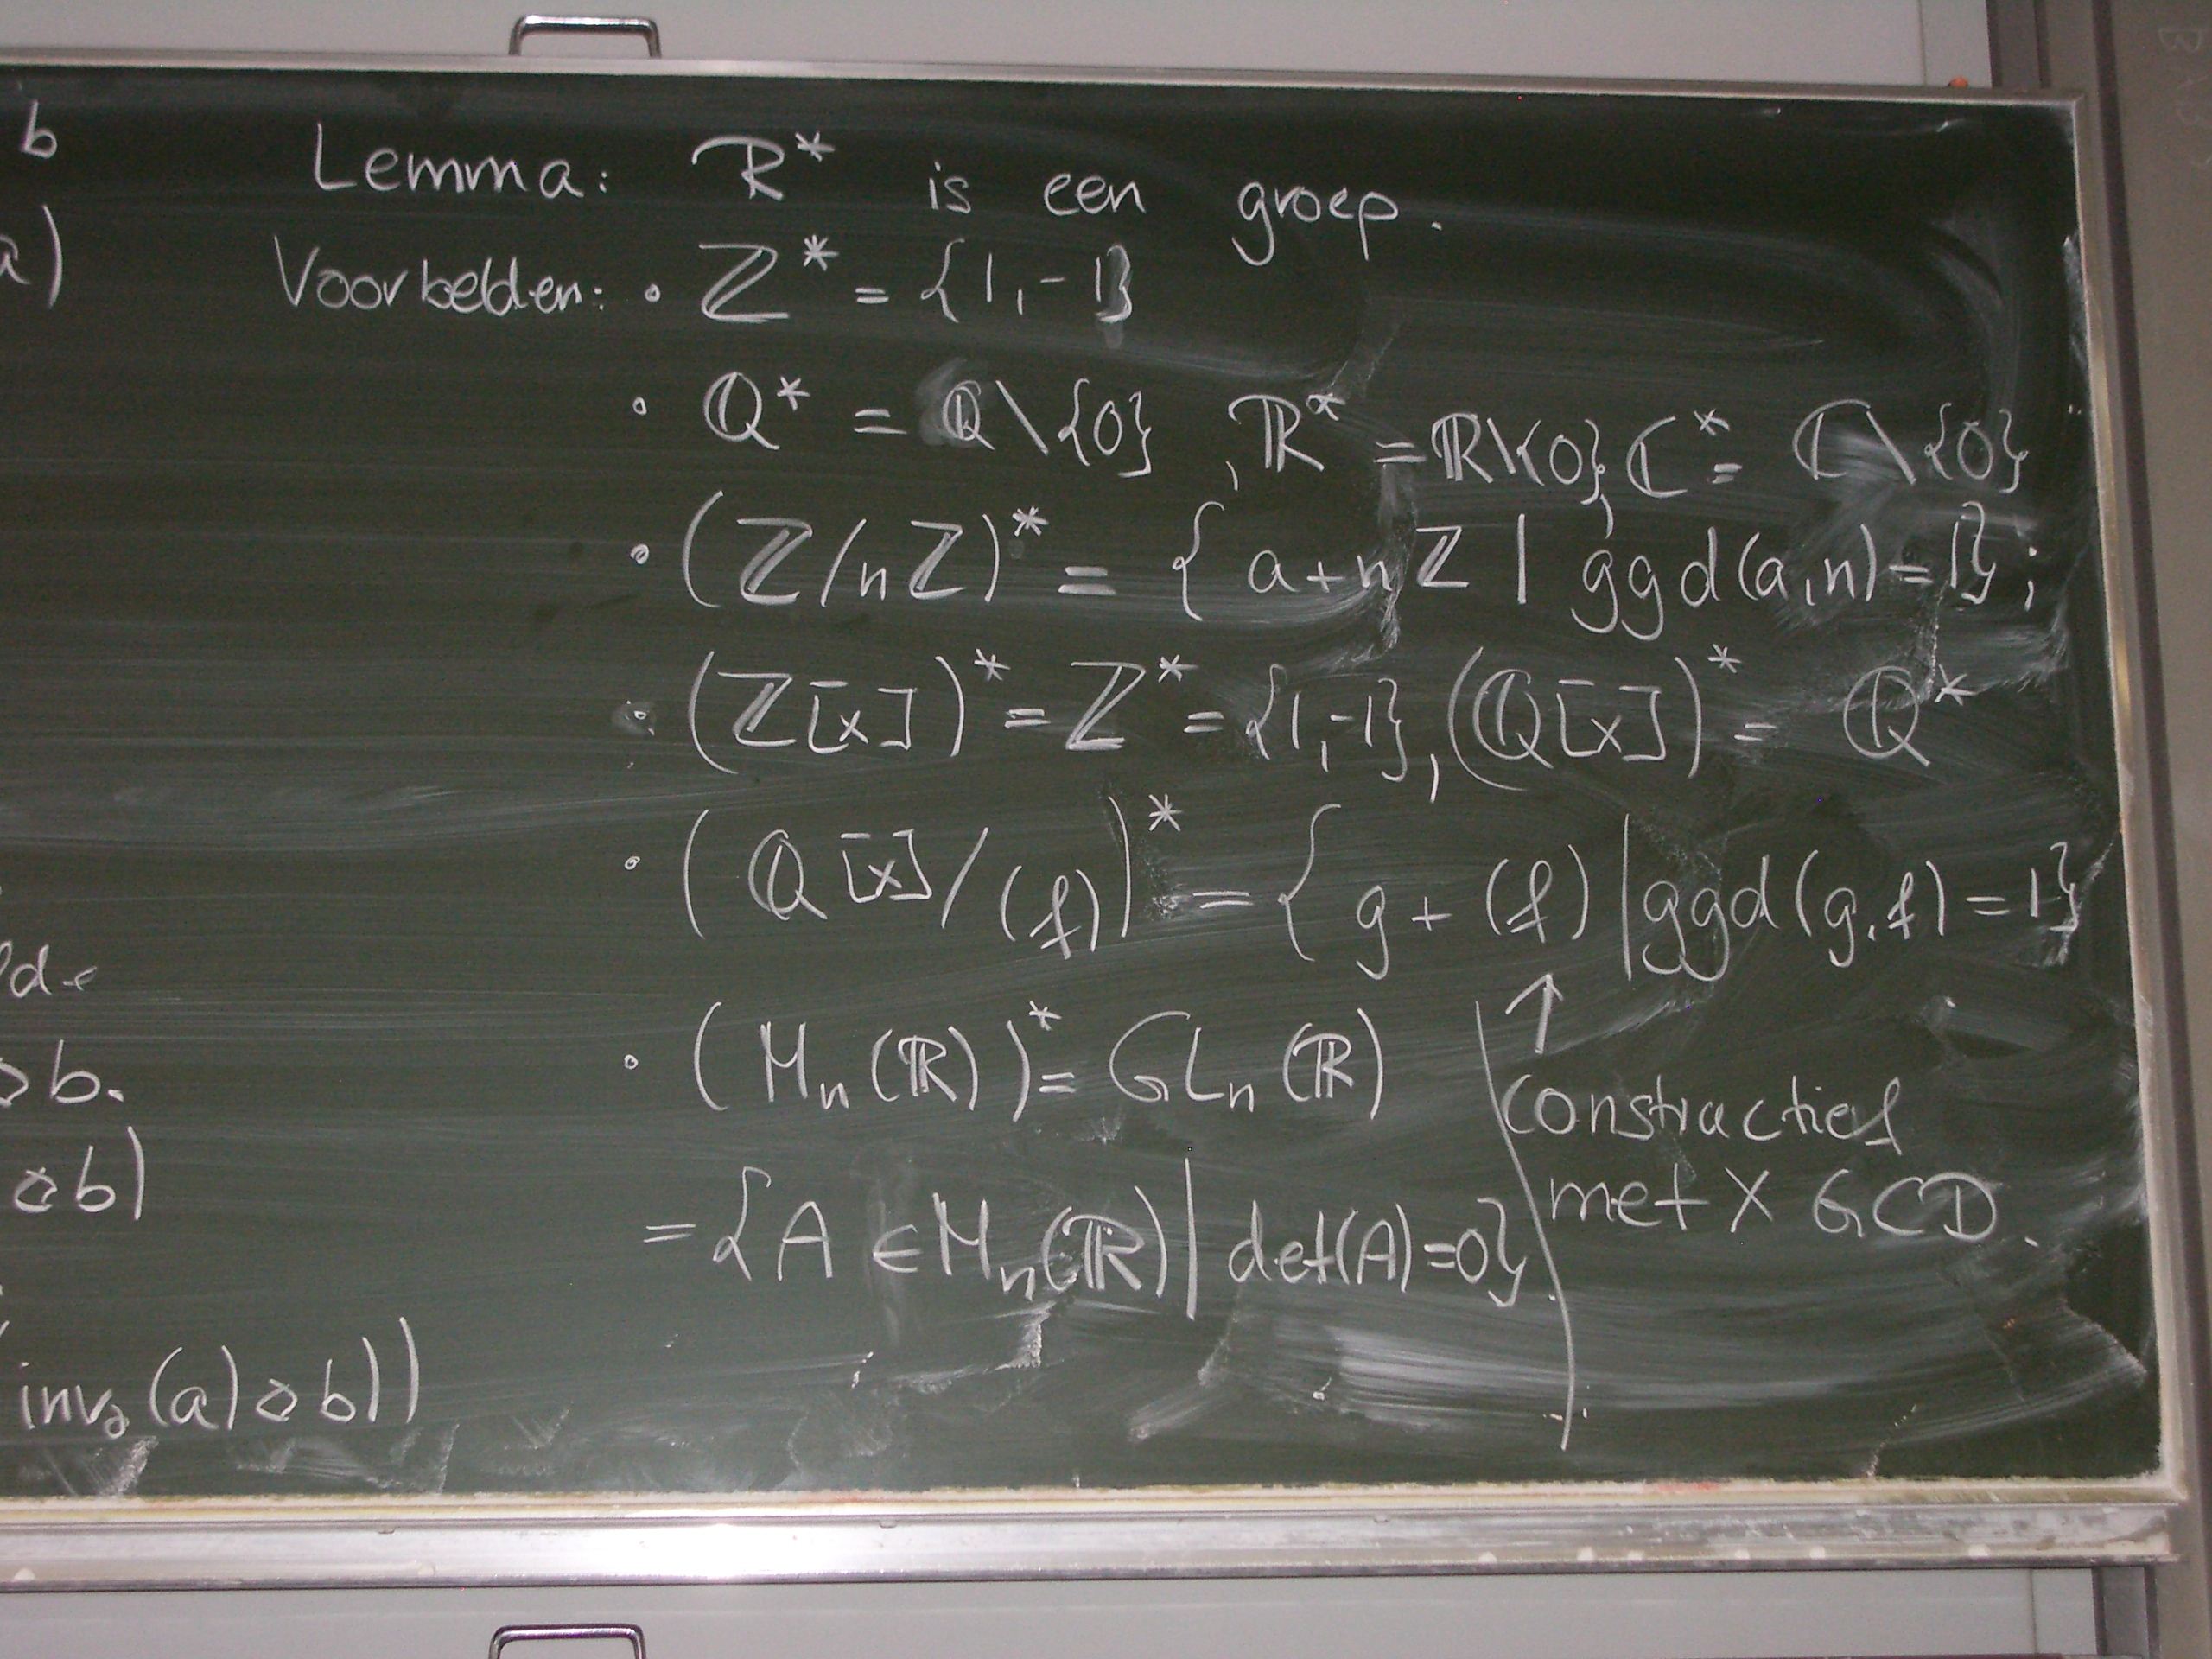 b
a)
Lemma: R* is een groep.
Voorbelden: • ℤ* = {1,-1}
• ℚ* = ℚ\{0}, ℝ* = ℝ\{0}, ℂ* = ℂ\{0}
• (ℤ/nℤ)* = { a+nℤ | ggd(a,n)=1};
• (ℤ[x])* = ℤ* = {1,-1}, (ℚ[x])* = ℚ*
• (ℚ[x]/(f))* = { g + (f) | ggd(g,f) = 1}
lde
↑
• (Mn(ℝ))* = GLn(ℝ)
b.
constructief
met X GCD.
b)
= {A ∈ Mn(ℝ) | det(A)=0}
inv₀(a) o b))